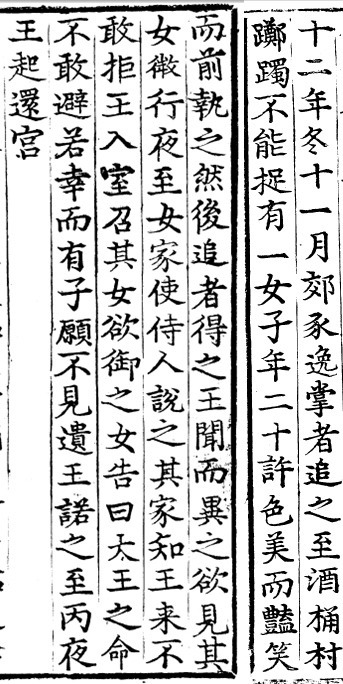 十二年冬十一月郊豕逸掌者追之至酒桶村
躑躅不能捉有一女子年二十許色美而豔笑
而前執之然後追者得之王聞而異之欲見其
女微行夜至女家使侍人說之其家知王来不
敢拒王入室召其女欲御之女告曰大王之命
不敢避若幸而有子願不見遺王諾之至丙夜
王起還宮